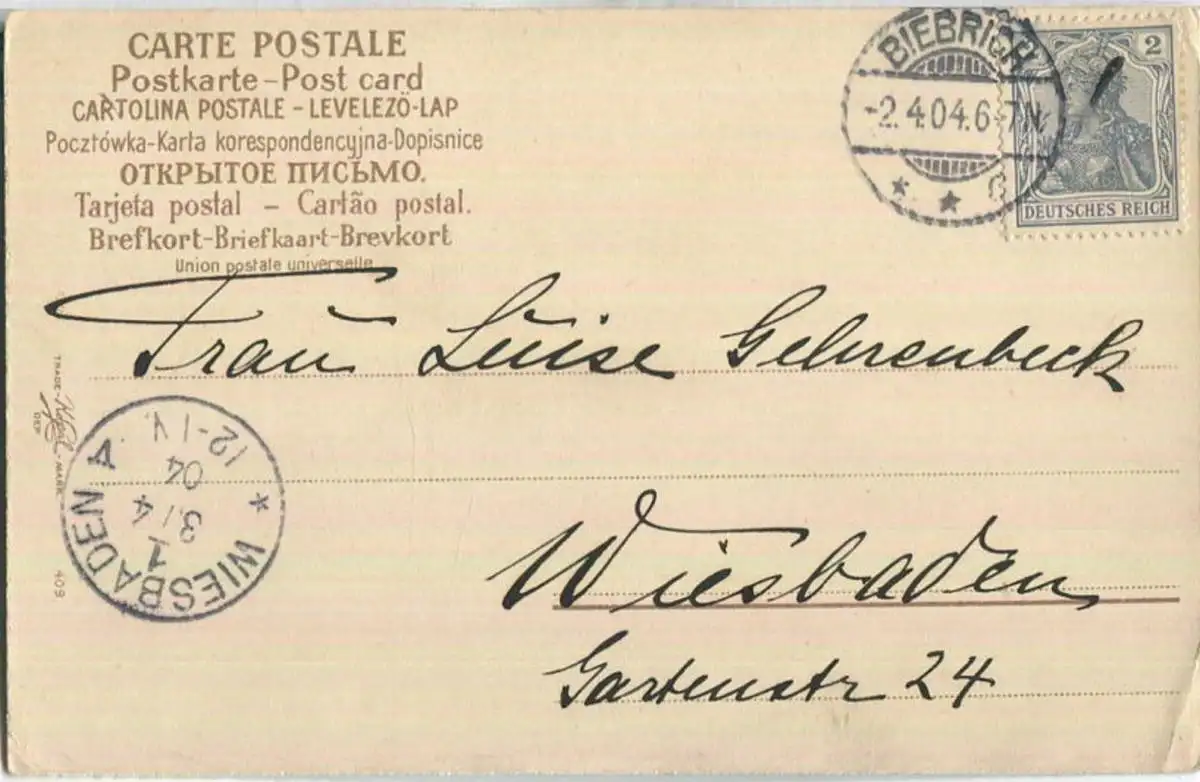 CARTE POSTALE
Postkarte-Post card
CARTOLINA POSTALE - LEVELEZÖ-LAP
Pocztówka-Karta korespondencyjna-Dopisnice
ОТКРЫТОЕ ПИСЬМО.
Tarjeta postal - Cartão postal.
Brefkort-Briefkaart-Brevkort
Union postale universelle
BIEBRICH
-2.4.04.6-7N.
* * c.
2
DEUTSCHES REICH
Frau Luise Gehrenbeck
Wiesbaden
Gartenstr 24
TRADE MARK
DEP
409
* WIESBADEN A.
1
3/4
04
12-1V.